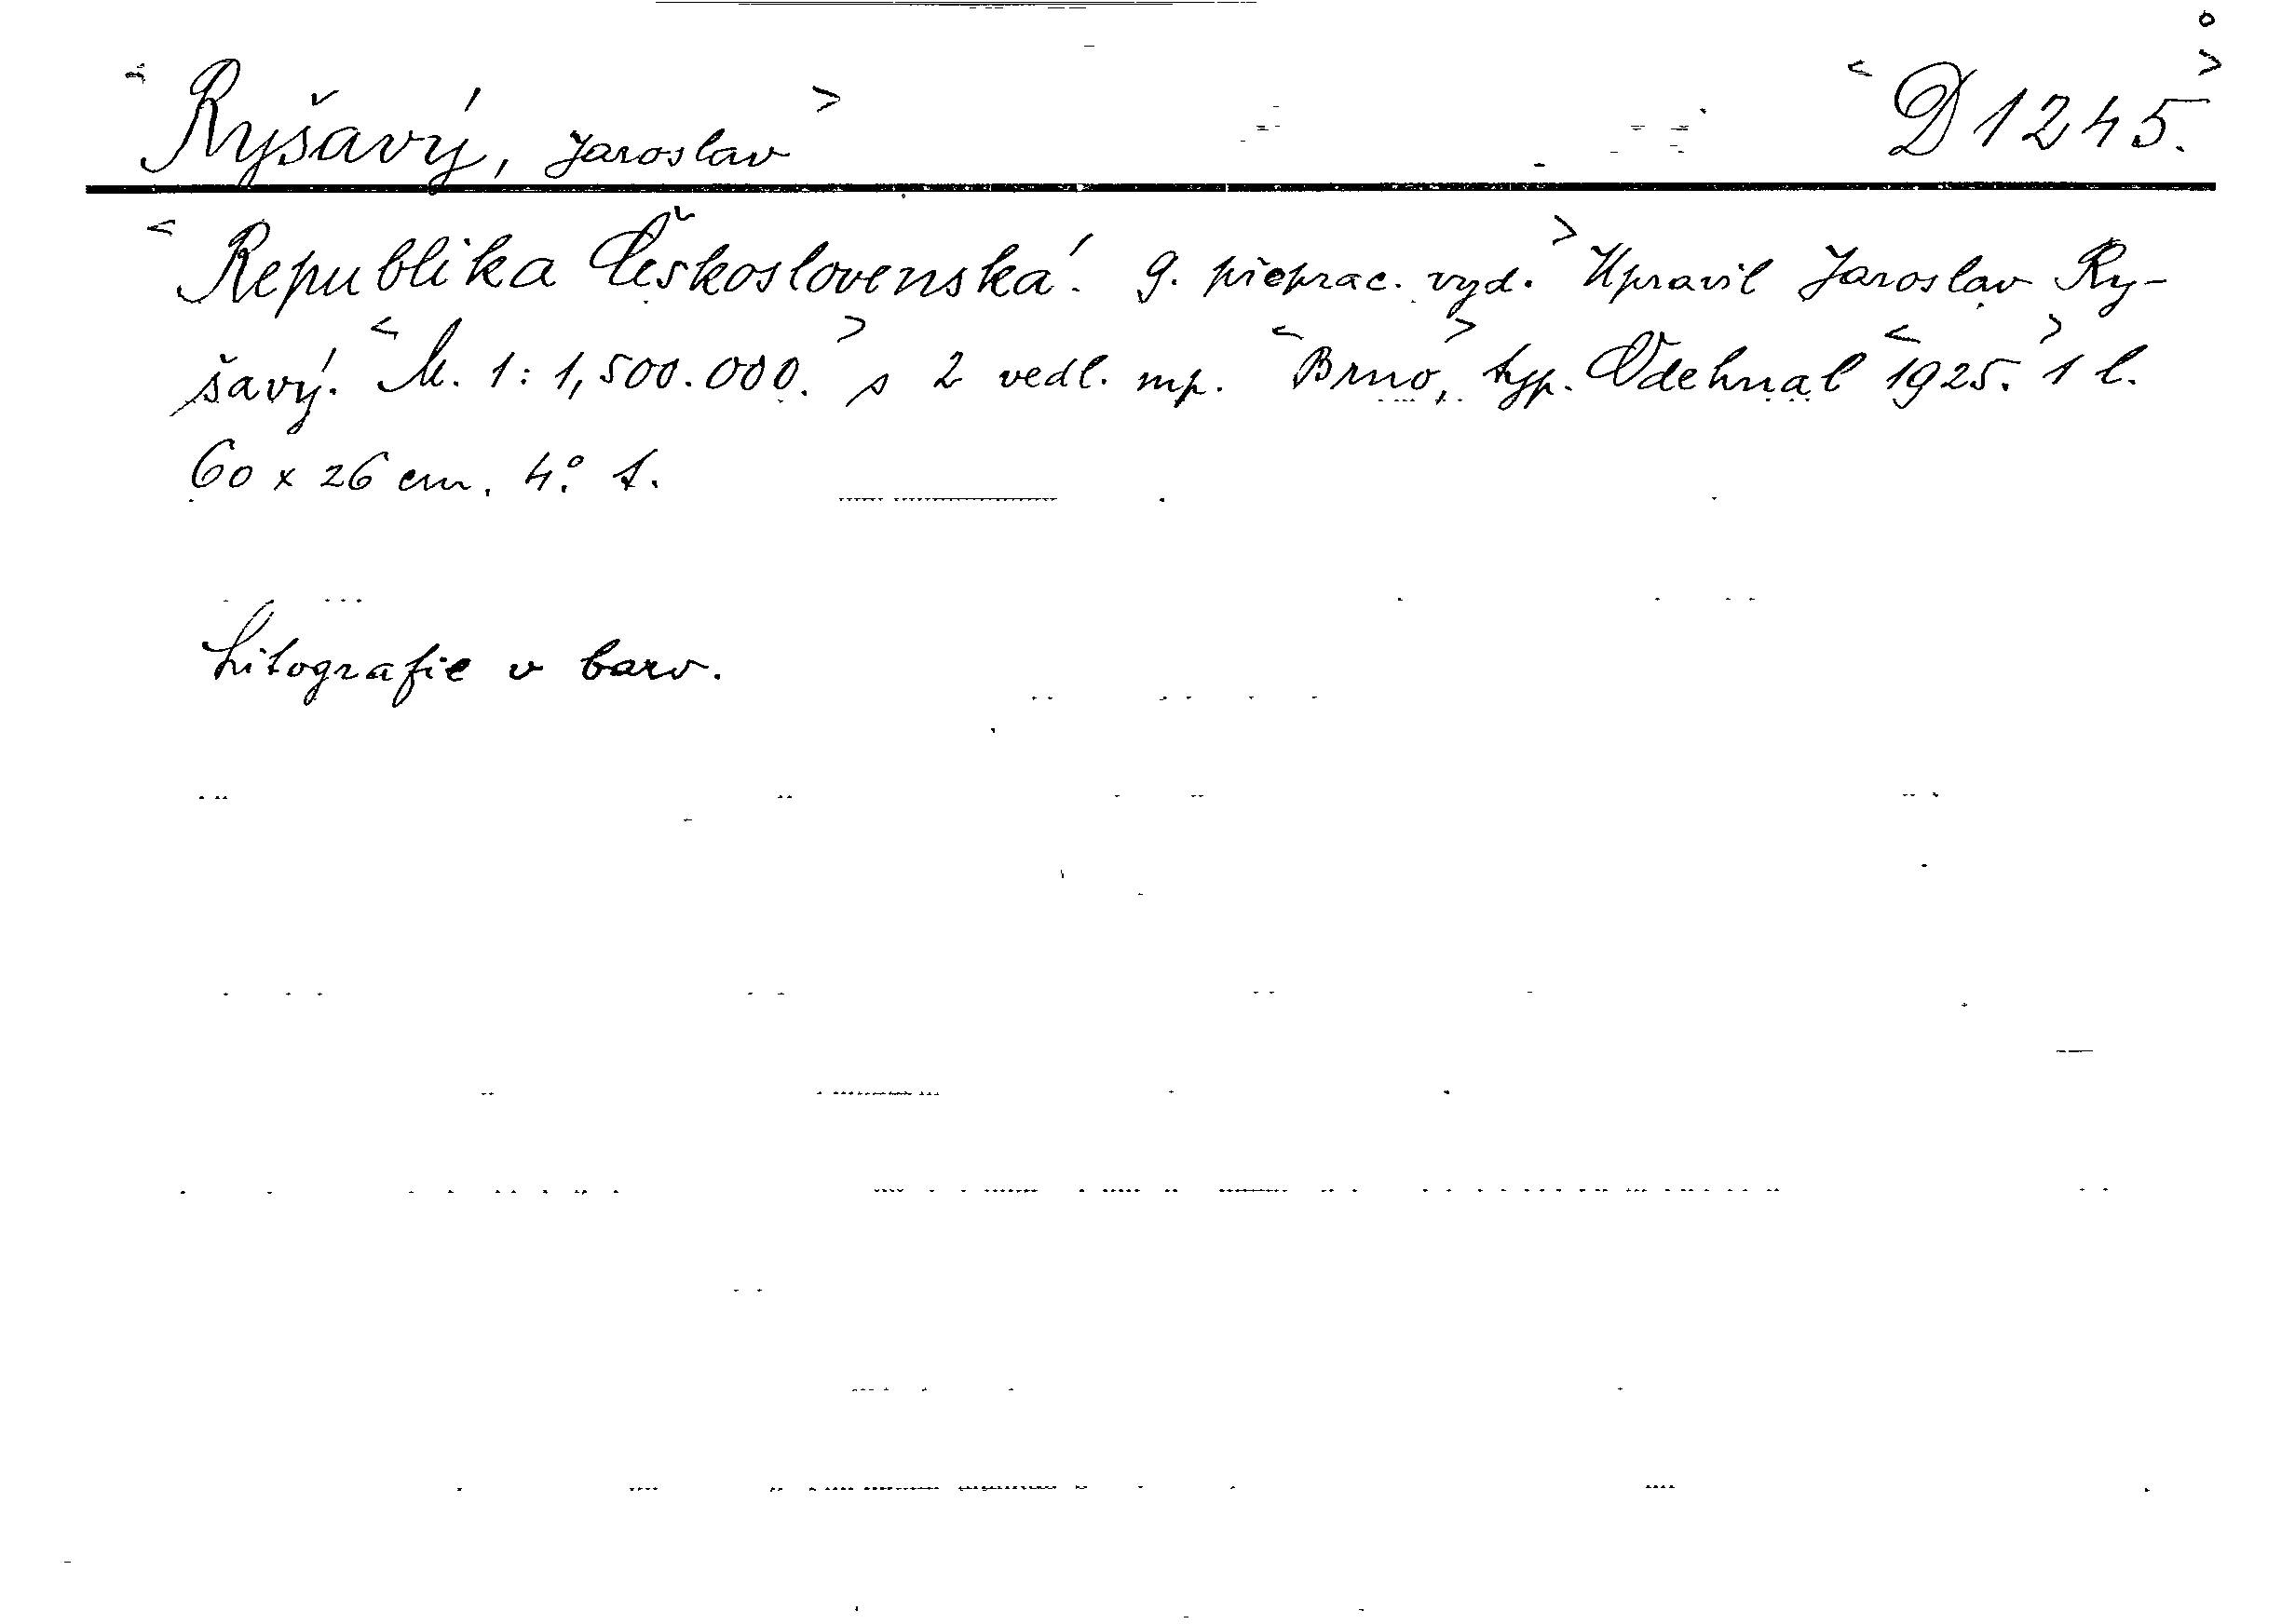 <Ryšavý, Jaroslav> <D 1245.>
<Republika Československá. 9. přeprac. vyd.> Upravil Jaroslav Ry-
šavý. <M. 1:1,500.000.> s 2 vedl. mp. <Brno>, typ. Odehnal <1925.> 1 l.
60 x 26 cm. 4°.
Litografie v barv.